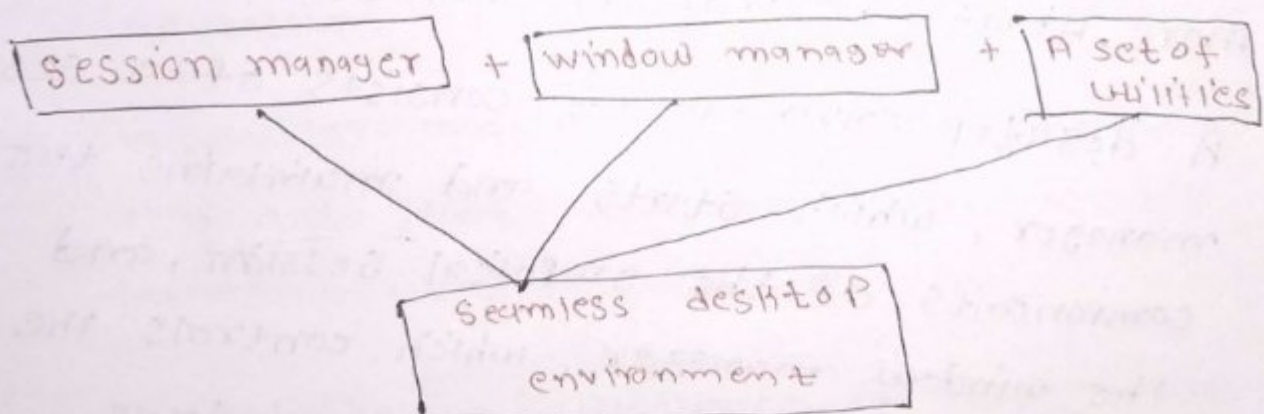 session manager + window manager + A set of
utilities
Seamless desktop
environment